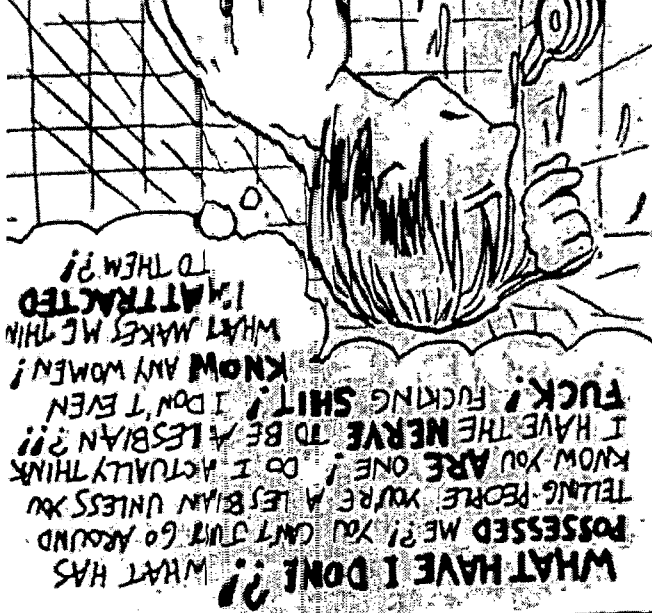 WHAT HAVE I DONE?! WHAT HAS
POSSESSED ME?! YOU CAN'T JUST GO AROUND
TELLING PEOPLE YOU'RE A LESBIAN UNLESS YOU
KNOW YOU ARE ONE! DO I ACTUALLY THINK
I HAVE THE NERVE TO BE A LESBIAN?!!
FUCK! FUCKING SHIT! I DON'T EVEN
KNOW ANY WOMEN!
WHAT MAKES ME THIN
I'M ATTRACTED
TO THEM?!